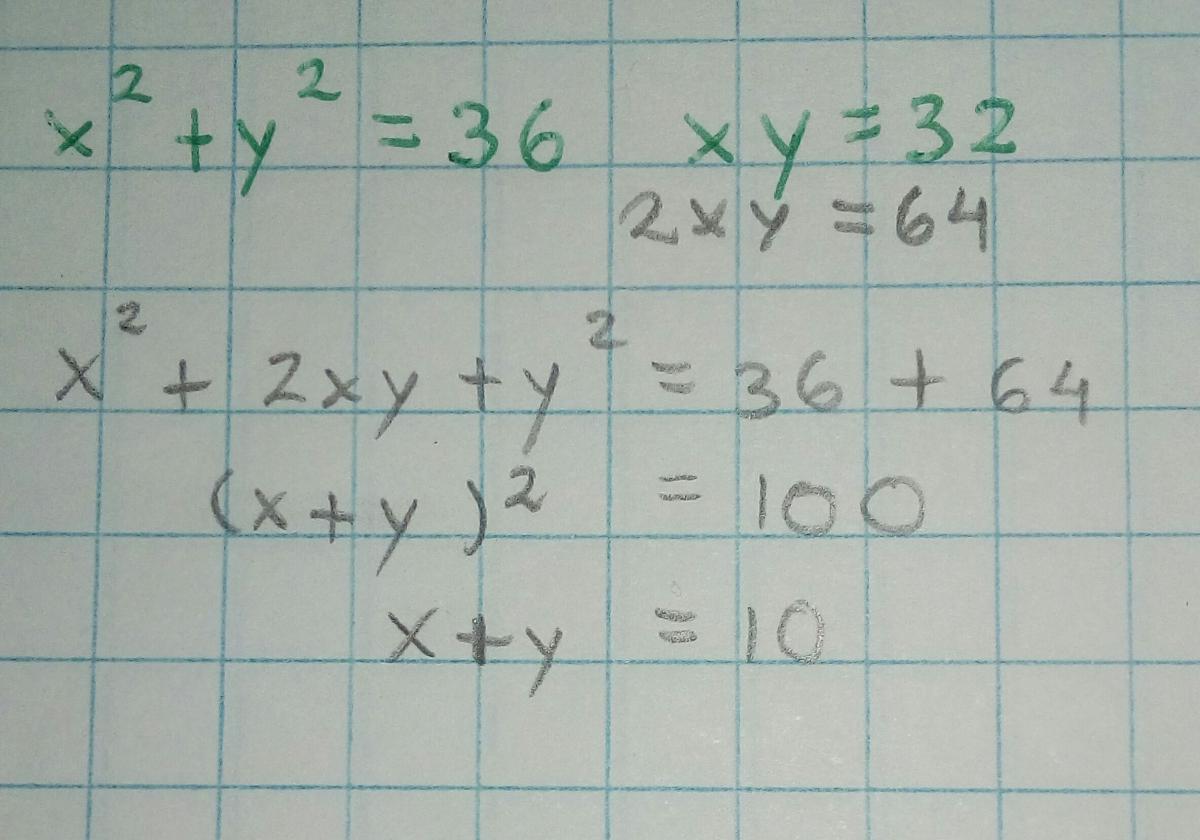 x² + y² = 36 xy = 32
2xy = 64
x² + 2xy + y² = 36 + 64
(x + y)² = 100
x + y = 10